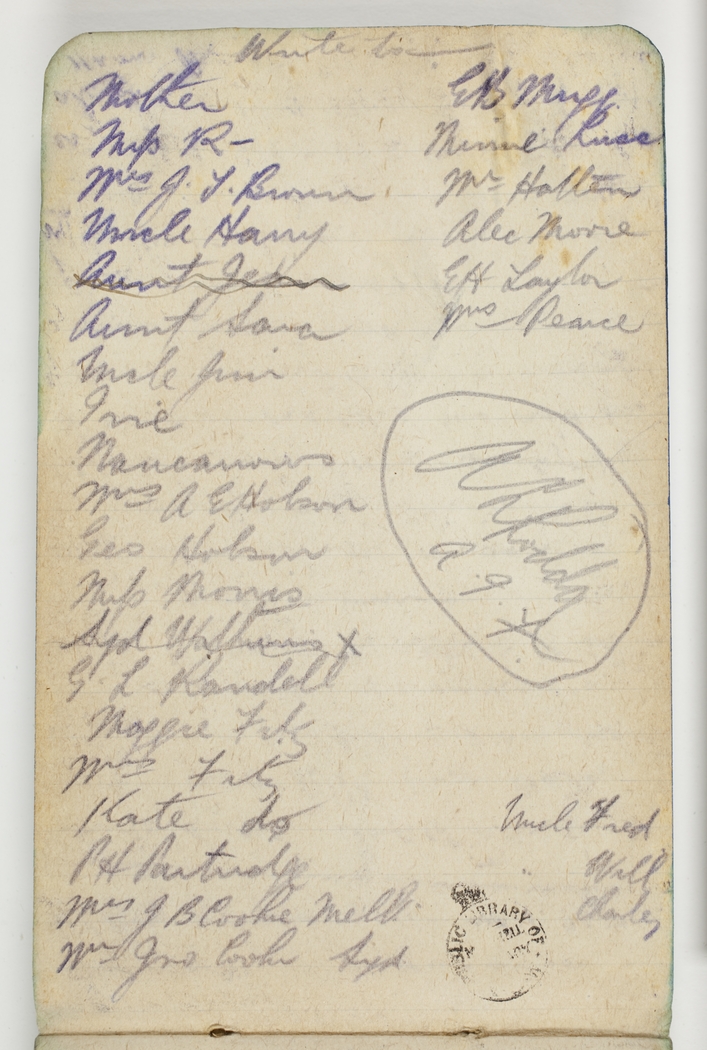 Write to:-
Mother
Miss R-
Mrs J. T. Brown
Uncle Harry
Aunt Jean
Aunt Sara
Uncle Jim
Ivie
Nancarrows
Mrs A E Hobson
Geo Hobson
Miss Morris
Syd Watkins X
G L Randell
Maggie Fitz
Mrs Fitz
Kate do
P H Partridge
Mrs J B Cooke Melb
Mrs Jno Cooke Syd
E H Mugg
Minnie Russ
Mr Hatten
Alec Moore
E H Taylor
Mrs Pearce
A
Uncle Fred
" Will
Charley
PUBLIC LIBRARY OF